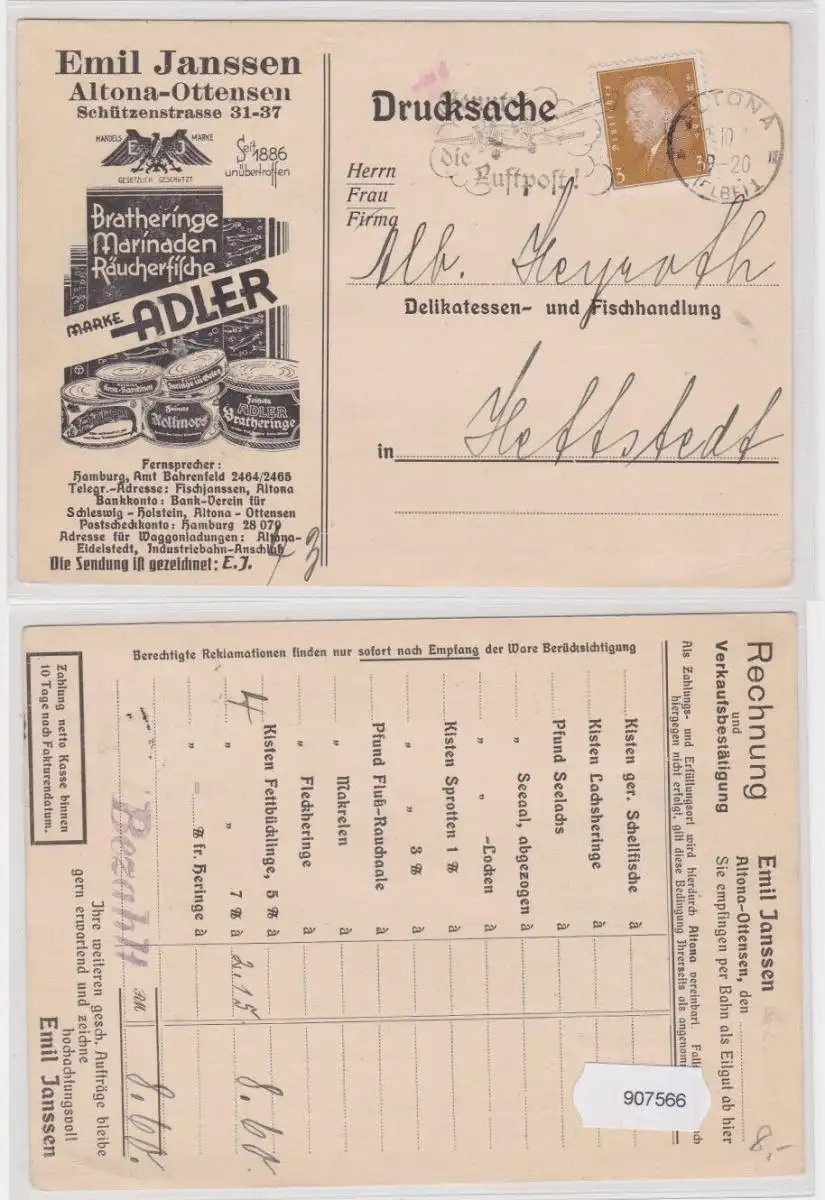 Emil Janssen
Altona-Ottensen
Schützenstrasse 31-37
HANDELS MARKE
E J
GESETZLICH GESCHÜTZT
Seit 1886
unübertroffen
Bratheringe
Marinaden
Räucherfische
MARKE ADLER
Rollmops
ADLER
Bratheringe
Fernsprecher:
Hamburg, Amt Bahrenfeld 2464/2465
Telegr.-Adresse: Fischjanssen, Altona
Bankkonto: Bank-Verein für
Schleswig-Holstein, Altona-Ottensen
Postscheckkonto: Hamburg 28 079
Adresse für Waggonladungen: Altona-
Eidelstedt, Industriebahn-Anschluß
Die Sendung ist gezeichnet: E.J.
Drucksache
die
Luftpost!
3 3
ALTONA
9-20
(ELBE) 1
Herrn
Frau
Firma
Alb. Heyroth
Delikatessen- und Fischhandlung
in Hettstedt
Rechnung
und
Verkaufsbestätigung
Emil Janssen
Altona-Ottensen, den
Sie empfingen per Bahn als Eilgut ab hier
8.-
Als Zahlungs- und Erfüllungsort wird hierdurch Altona vereinbart.
hiergegen nicht erfolgt, gilt diese Bedingung Ihrerseits als
Kisten ger. Schellfische à
Kisten Lachsheringe à
Pfund Seelachs à
" Seeaal, abgezogen à
" " -Locken à
Kisten Sprotten 1 ℔ à
" " 3 ℔ à
Pfund Fluß-Rauchaale à
" Makrelen à
" Fleckheringe à
Kisten Fettbücklinge, 5 ℔ à
4 " " 7 ℔ à 2.15 8.60
" = ℔ fr. Heringe à
RM 8.60.
Bezahlt
Berechtigte Reklamationen finden nur sofort nach Empfang der Ware Berücksichtigung
Zahlung netto Kasse binnen
10 Tage nach Fakturendatum.
Ihre weiteren gesch. Aufträge bleibe
gern erwartend und zeichne
hochachtungsvoll
Emil Janssen
907566